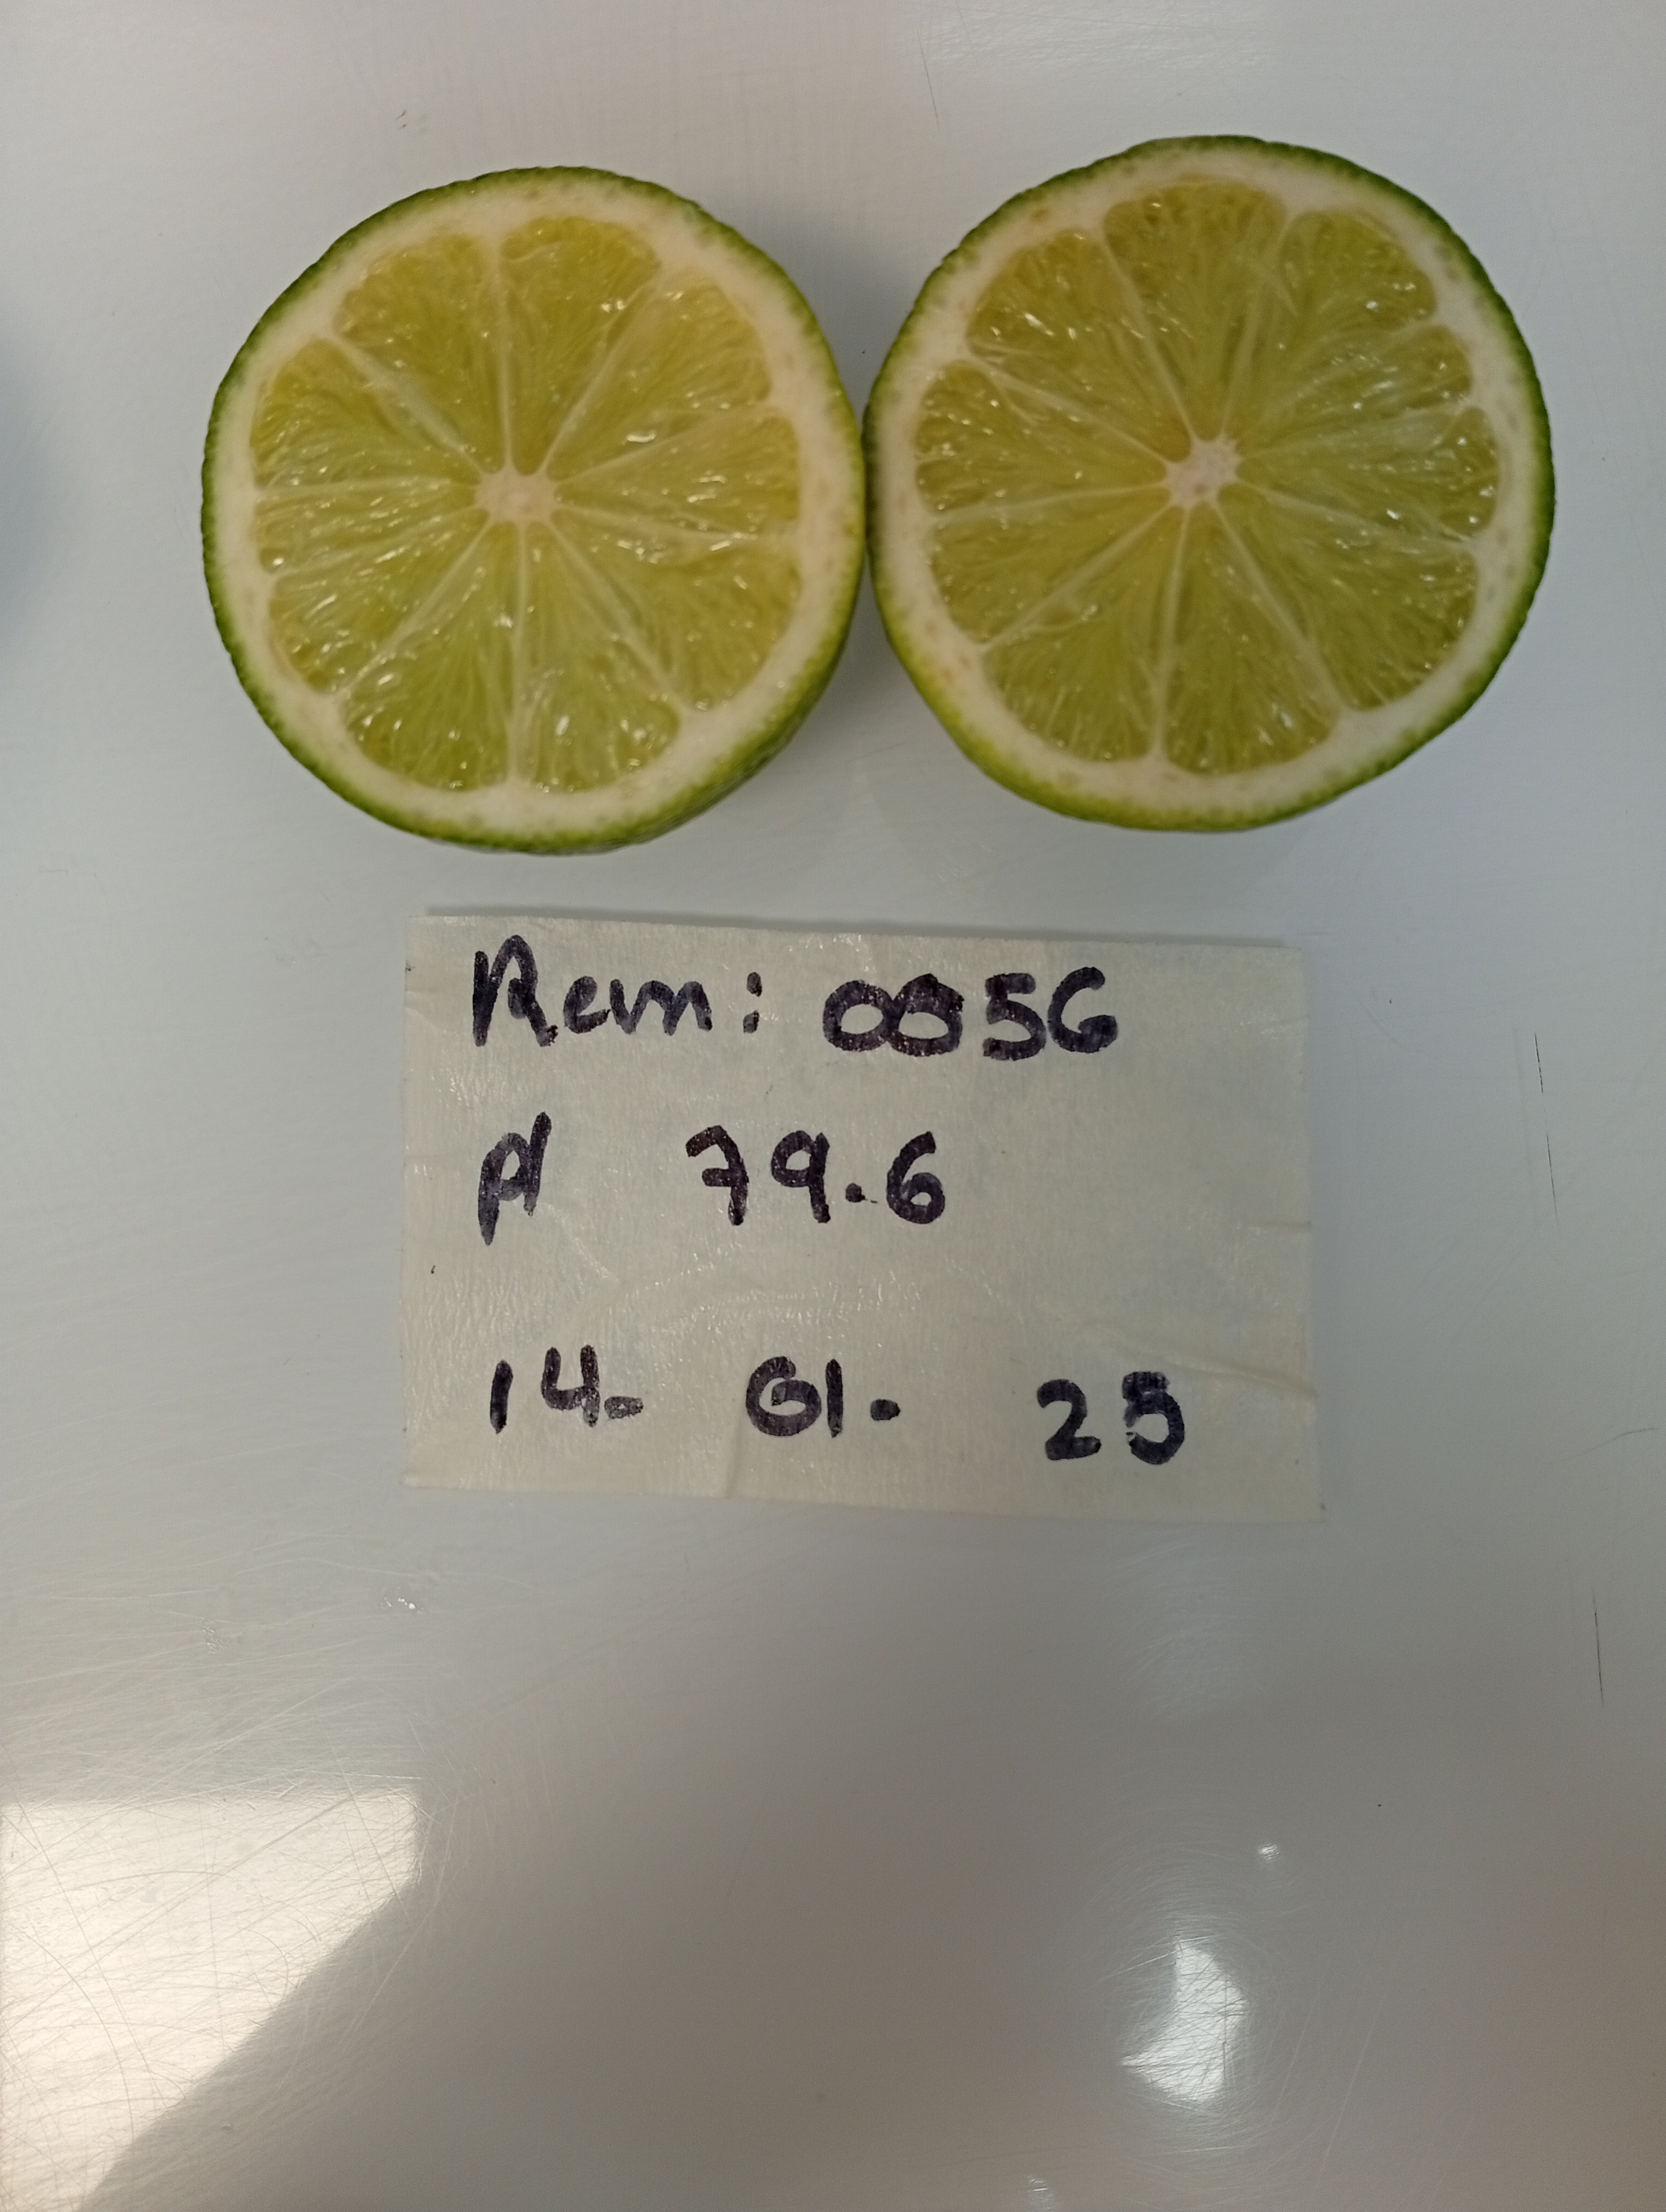 Rem: 0856
pl 79.6
14. 01. 25